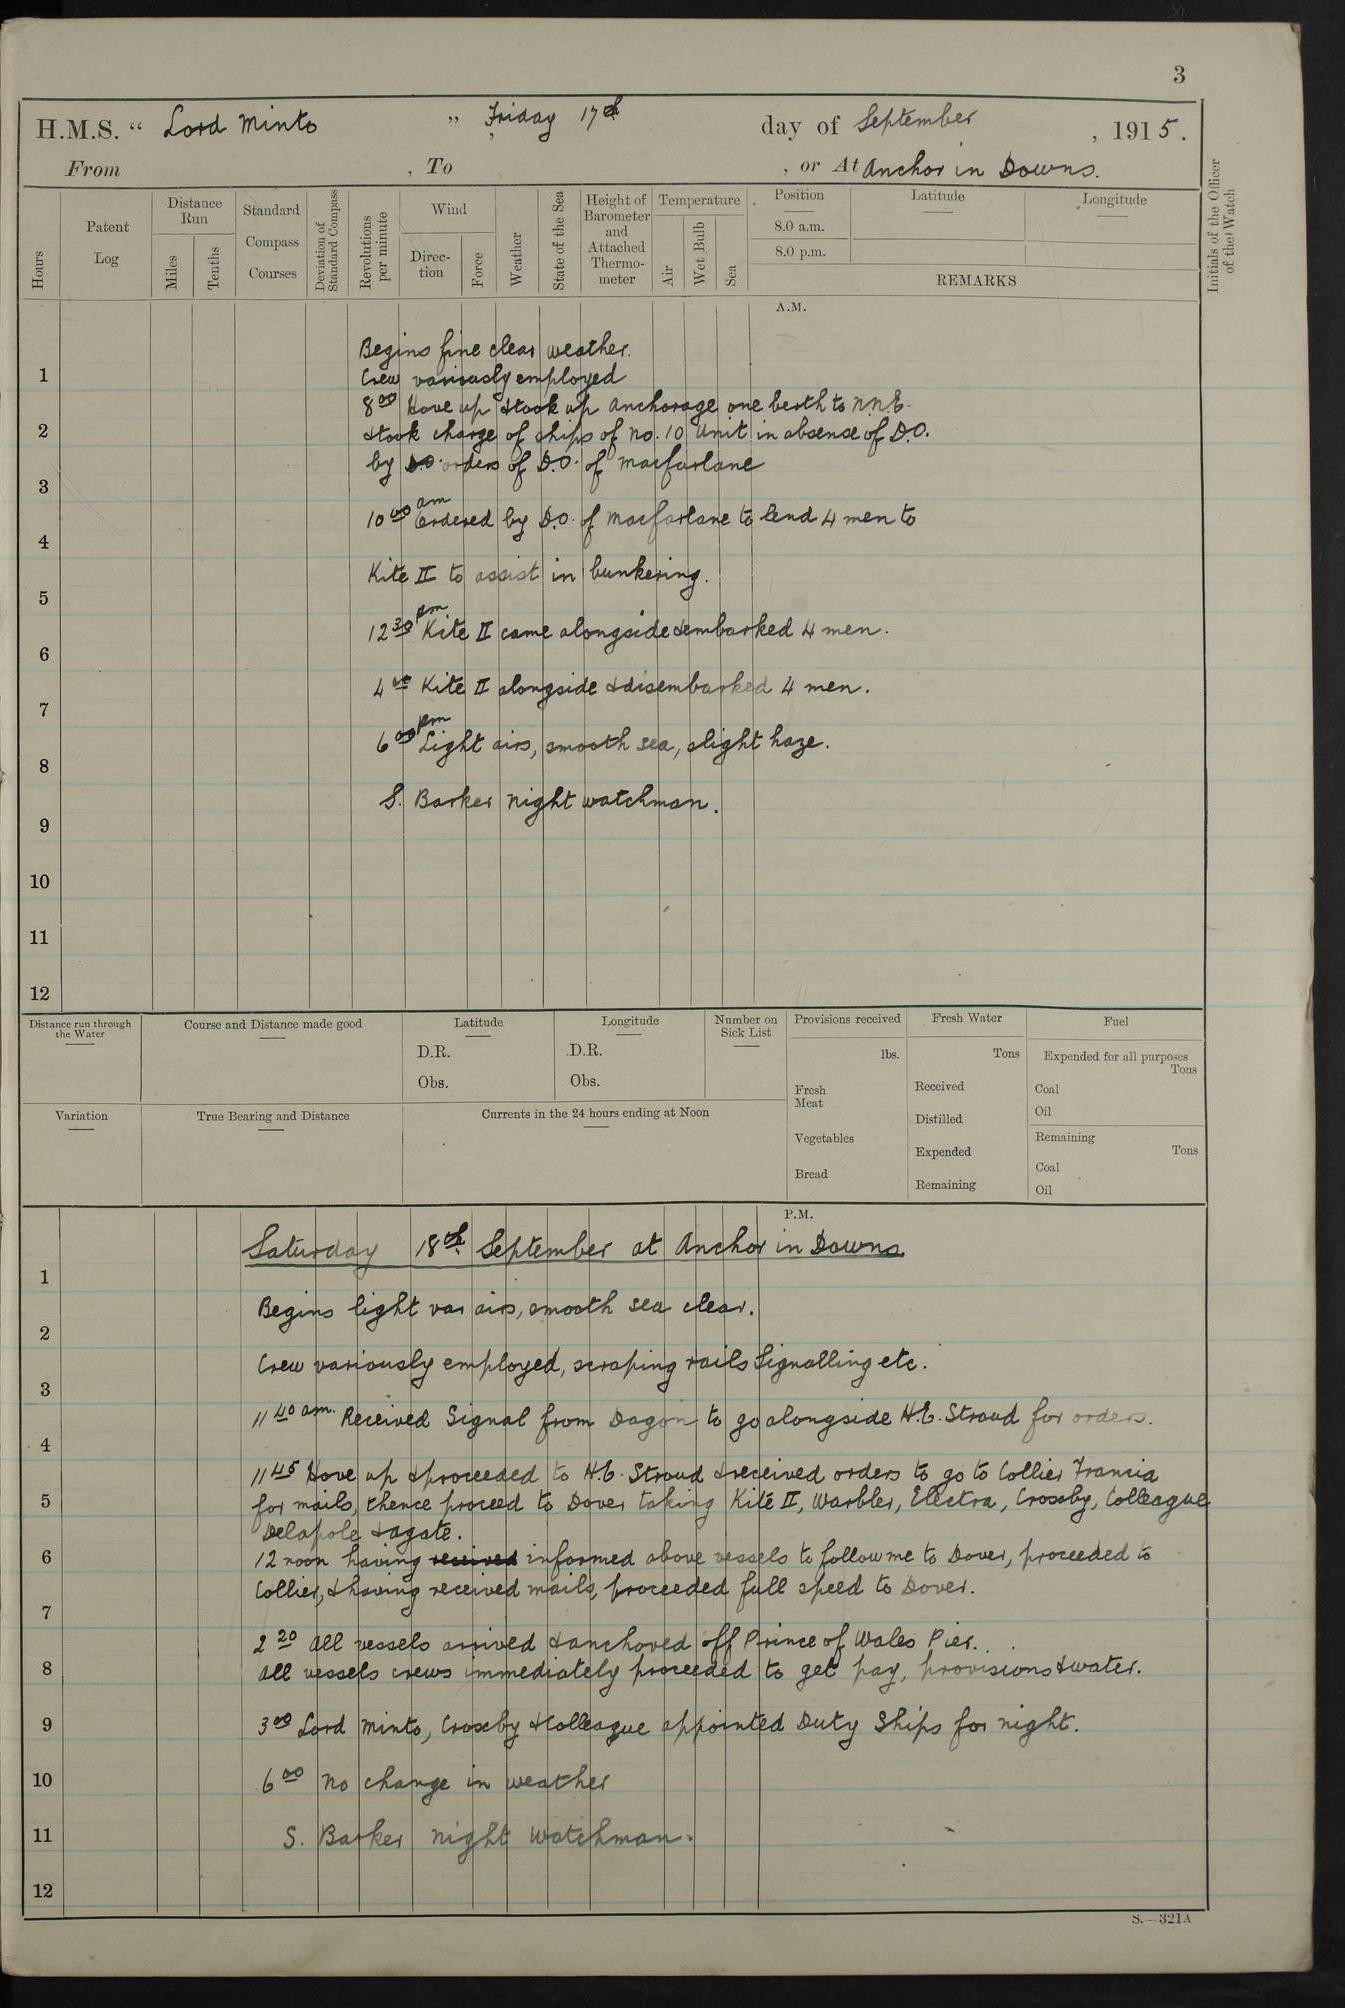 3
H.M.S. " Lord Minto " Friday 17th day of September, 1915.
From , To , or At Anchor in Downs.
Hours
Patent Log
Distance Run
Miles
Tenths
Standard Compass Courses
Deviation of Standard Compass
Revolutions per minute
Wind
Direction
Force
Weather
State of the Sea
Height of Barometer and Attached Thermometer
Temperature
Air
Wet Bulb
Sea
Position
8.0 a.m.
8.0 p.m.
Latitude
Longitude
REMARKS
Initials of the Officer of the Watch
A.M.
Begins fine clear weather.
1
Crew variously employed
8 00 Hove up & took up anchorage one berth to N.N.E.
2
& took charge of ships of No. 10 Unit in absense of D.O.
by D.O. orders of D.O. of Macfarlane
3
10 00 am Ordered by D.O. of Macfarlane to lend 4 men to
4
Kite II to assist in bunkering.
5
12 30 pm Kite II came alongside & embarked 4 men.
6
4 00 Kite II alongside & disembarked 4 men.
7
6 00 pm Light airs, smooth sea, slight haze.
8
S. Barker night watchman.
9
10
11
12
Distance run through the Water
Course and Distance made good
Latitude
D.R.
Obs.
Longitude
D.R.
Obs.
Number on Sick List
Provisions received
lbs.
Fresh Meat
Vegetables
Bread
Fresh Water
Tons
Received
Distilled
Expended
Remaining
Fuel
Expended for all purposes
Tons
Coal
Oil
Remaining
Tons
Coal
Oil
Variation
True Bearing and Distance
Currents in the 24 hours ending at Noon
P.M.
Saturday 18th September at Anchor in Downs
1
Begins light var airs, smooth sea clear.
2
Crew variously employed, scraping rails Signalling etc.
3
11 40 am. Received Signal from Dagon to go alongside H.E. Stroud for orders.
4
11 45 Hove up & proceeded to H.E. Stroud & received orders to go to Collier Francia
5
for mails, thence proceed to Dover taking Kite II, Warbler, Electra, Crossby, Colleague
Delapole & agate.
6
12 noon having received informed above vessels to follow me to Dover, proceeded to
Collier, & having received mails, proceeded full speed to Dover.
7
2 20 All vessels arrived & anchored off Prince of Wales Pier.
8
All vessels crews immediately proceeded to get pay, provisions & water.
9
3 00 Lord Minto, Crossby & Colleague appointed Duty Ships for night.
10
6 00 No change in weather
11
S. Barker night watchman.
12
S.—321A